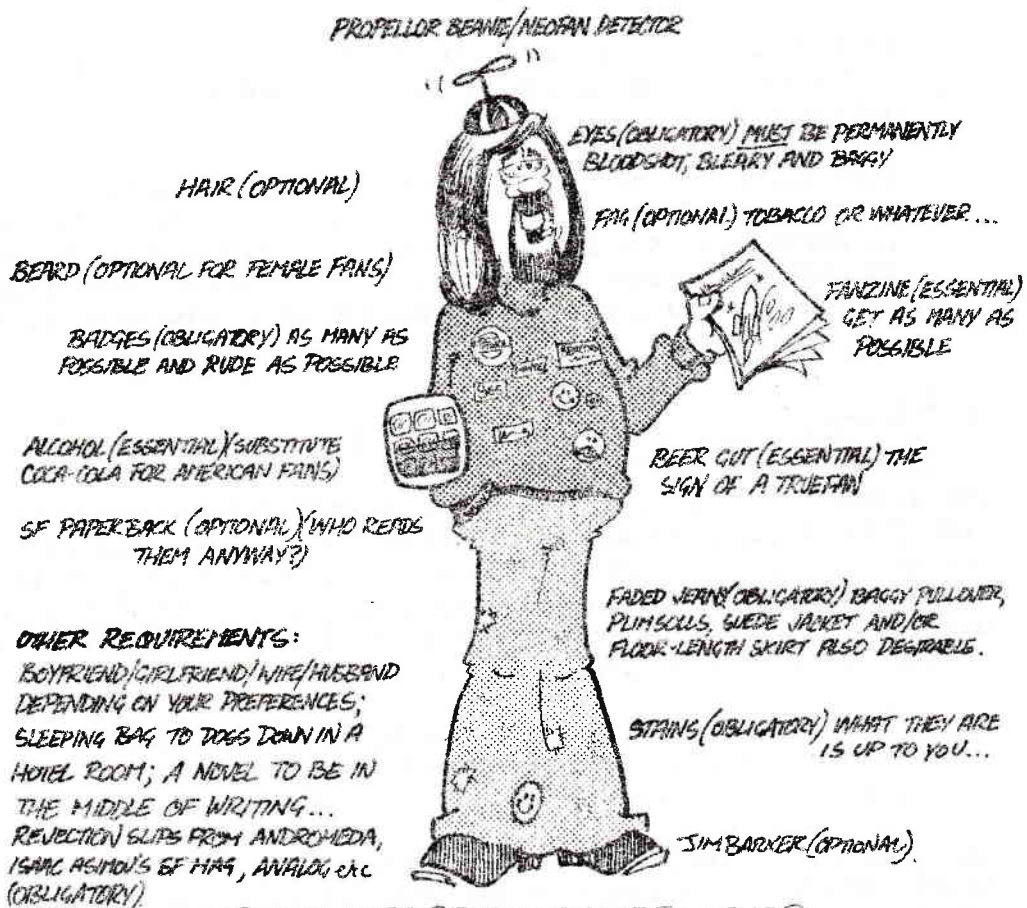 PROPELLOR BEANIE/NEOFAN DETECTOR
EYES (OBLIGATORY) MUST BE PERMANENTLY
BLOODSHOT, BLEARY AND BAGGY
HAIR (OPTIONAL)
FAG (OPTIONAL) TOBACCO OR WHATEVER...
BEARD (OPTIONAL FOR FEMALE FANS)
FANZINE (ESSENTIAL)
GET AS MANY AS
POSSIBLE
BADGES (OBLIGATORY) AS MANY AS
POSSIBLE AND RUDE AS POSSIBLE
ALCOHOL (ESSENTIAL) (SUBSTITUTE
COCA-COLA FOR AMERICAN FANS)
BEER GUT (ESSENTIAL) THE
SIGN OF A TRUEFAN
SF PAPERBACK (OPTIONAL) (WHO READS
THEM ANYWAY?)
FADED JEANS (OBLIGATORY) BAGGY PULLOVER,
PLIMSOLLS, SUEDE JACKET AND/OR
FLOOR-LENGTH SKIRT ALSO DESIRABLE.
OTHER REQUIREMENTS:
BOYFRIEND/GIRLFRIEND/WIFE/HUSBAND
DEPENDING ON YOUR PREFERENCES;
SLEEPING BAG TO DOSS DOWN IN A
HOTEL ROOM; A NOVEL TO BE IN
THE MIDDLE OF WRITING...
REJECTION SLIPS FROM ANDROMEDA,
ISAAC ASIMOV'S SF MAG, ANALOG etc
(OBLIGATORY).
STAINS (OBLIGATORY) WHAT THEY ARE
IS UP TO YOU...
JIM BARKER (OPTIONAL).